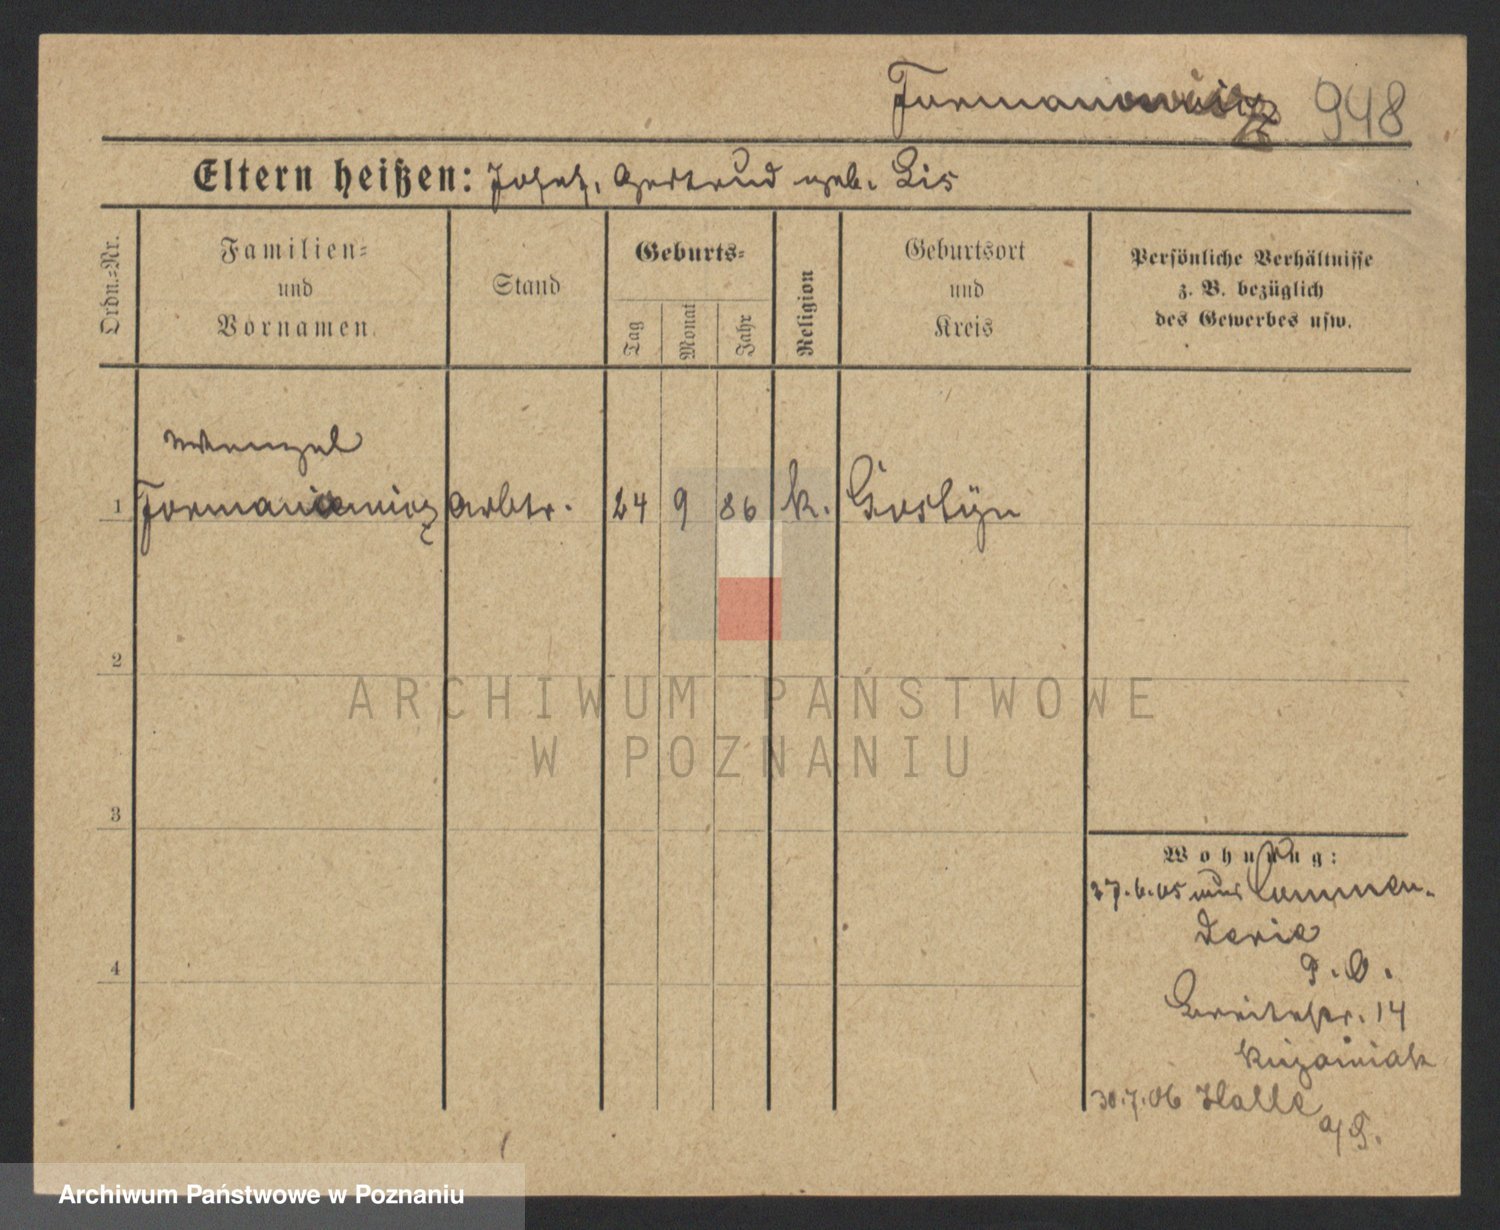 948
Eltern heißen: Josef, Gertrud geb. Lis
Ordn.=Nr.
Familien=
und
Vornamen
Stand
Geburts=
Tag
Monat
Jahr
Religion
Geburtsort
und
Kreis
Persönliche Verhältnisse
z. B. bezüglich
des Gewerbes usw.
Wenzel
1 Arbtr. 24 9 86 k. Gostyn
2
ARCHIWUM PAŃSTWOWE
W POZNANIU
3
4
Wohnung:
27.6.05 aus Commen-
derie
P. O.
Breitestr. 14
Kujawiak
30.7.06 Halle
a/S.
Archiwum Państwowe w Poznaniu